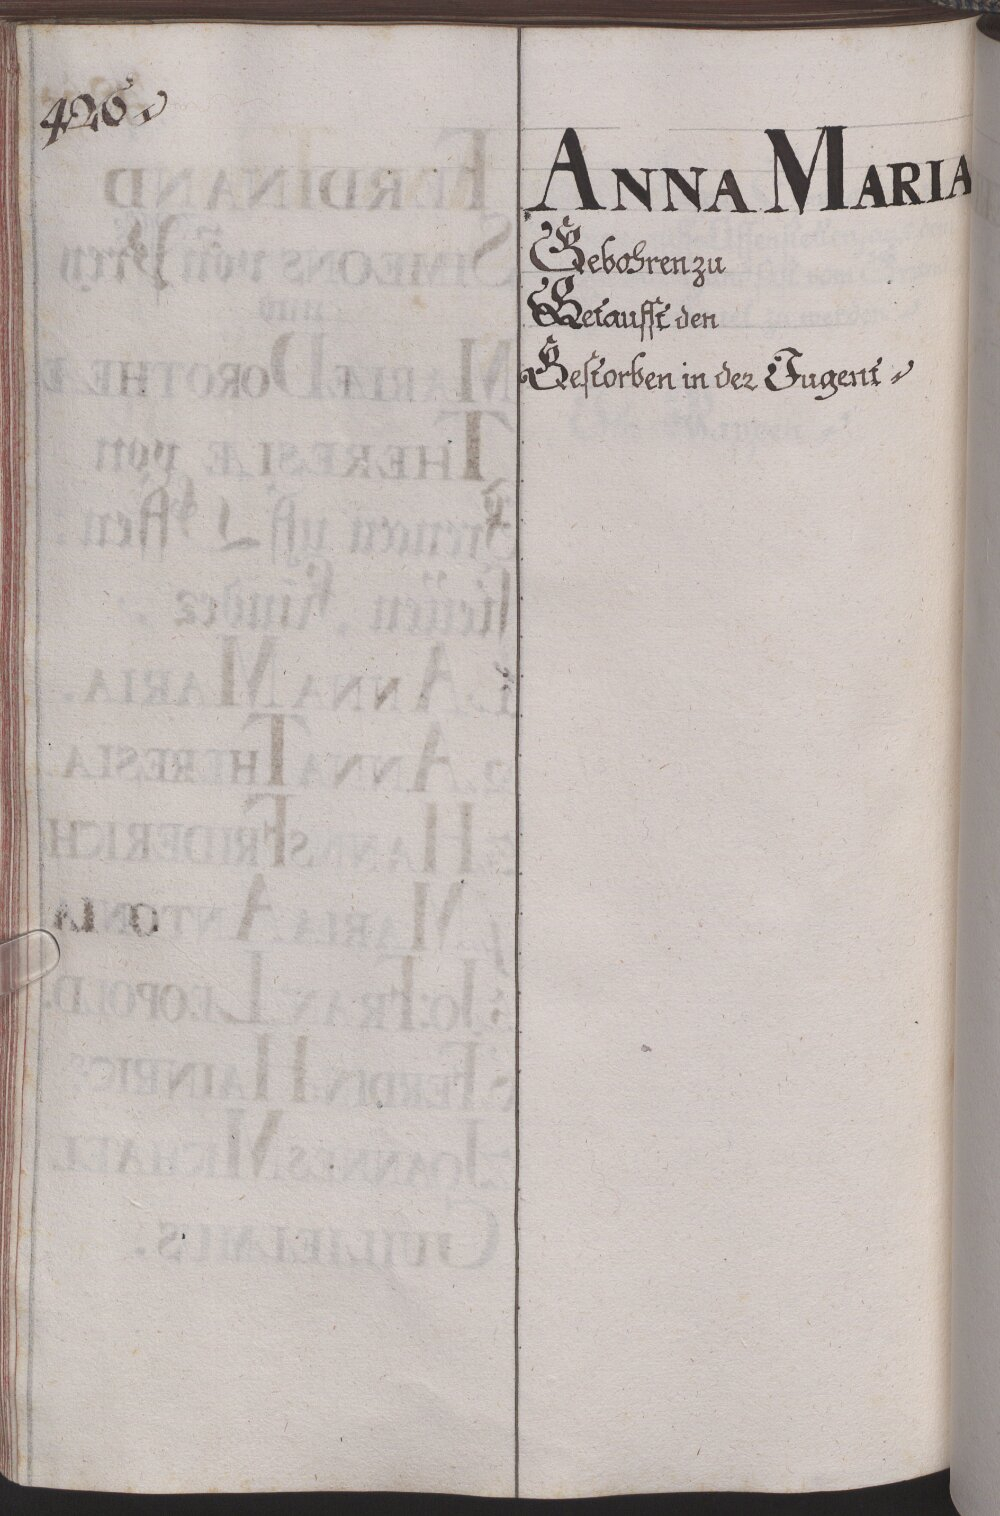 426
ANNA MARIA
Gebohren zu
Getaufft den
Gestorben in der Jugent